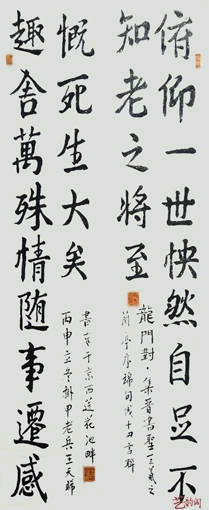 俯仰一世怏然自足不
知老之將至
龍門對·集晉書聖王羲之
蘭亭序錦句成十四言聯
趣舍萬殊情随事遷感
慨死生大矣
丙申立冬卸甲老兵王天
于京西莲花池畔